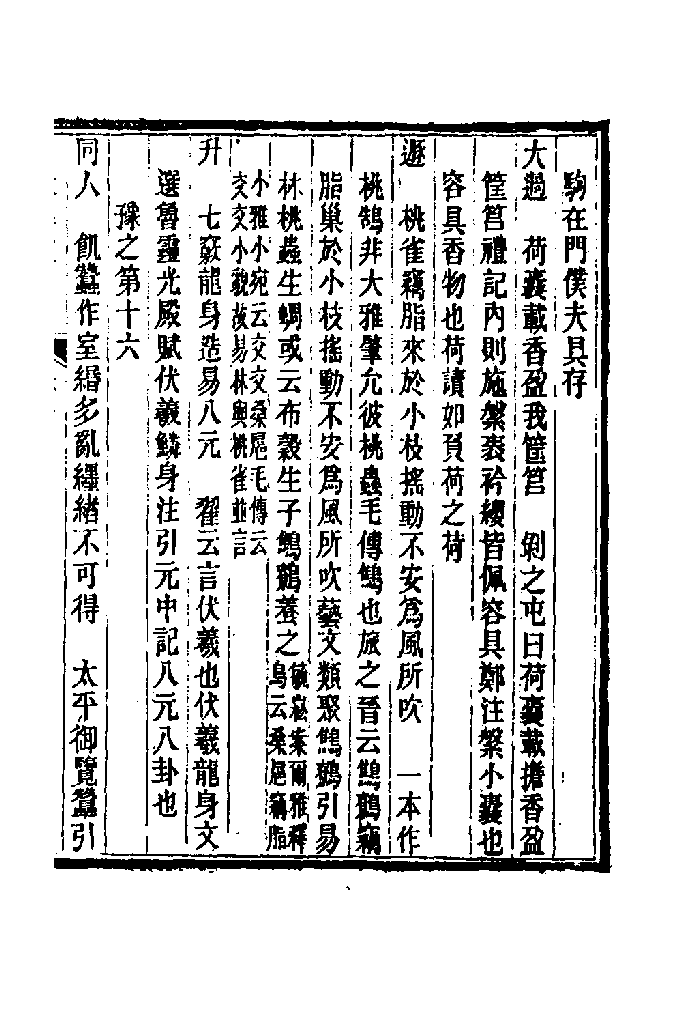 駒在門僕夫具存
大過　荷囊載香盈我筐筥　剝之屯曰荷囊載擔香盈
筐筥禮記內則施縏袠衿纓皆佩容具鄭注縏小囊也
容具香物也荷讀如負荷之荷
遯　桃雀竊脂來於小枝搖動不安爲風所吹　一本作
桃鵠非大雅肇允彼桃蟲毛傳鷦也旅之晉云鷦鷯竊
脂巢於小枝搖動不安爲風所吹藝文類聚鷦鷯引易
林桃蟲生蜩或云布穀生子鷦鷯養之
案爾雅釋
鳥云桑鳸竊脂
小雅小宛云交交桑扈毛傳云
交交小貌故易林與桃雀並言
升　七竅龍身造易八元　翟云言伏羲也伏羲龍身文
選魯靈光殿賦伏羲鱗身注引元中記八元八卦也
豫之第十六
同人　飢蠶作室緡多亂纏緒不可得　太平御覽蠶引